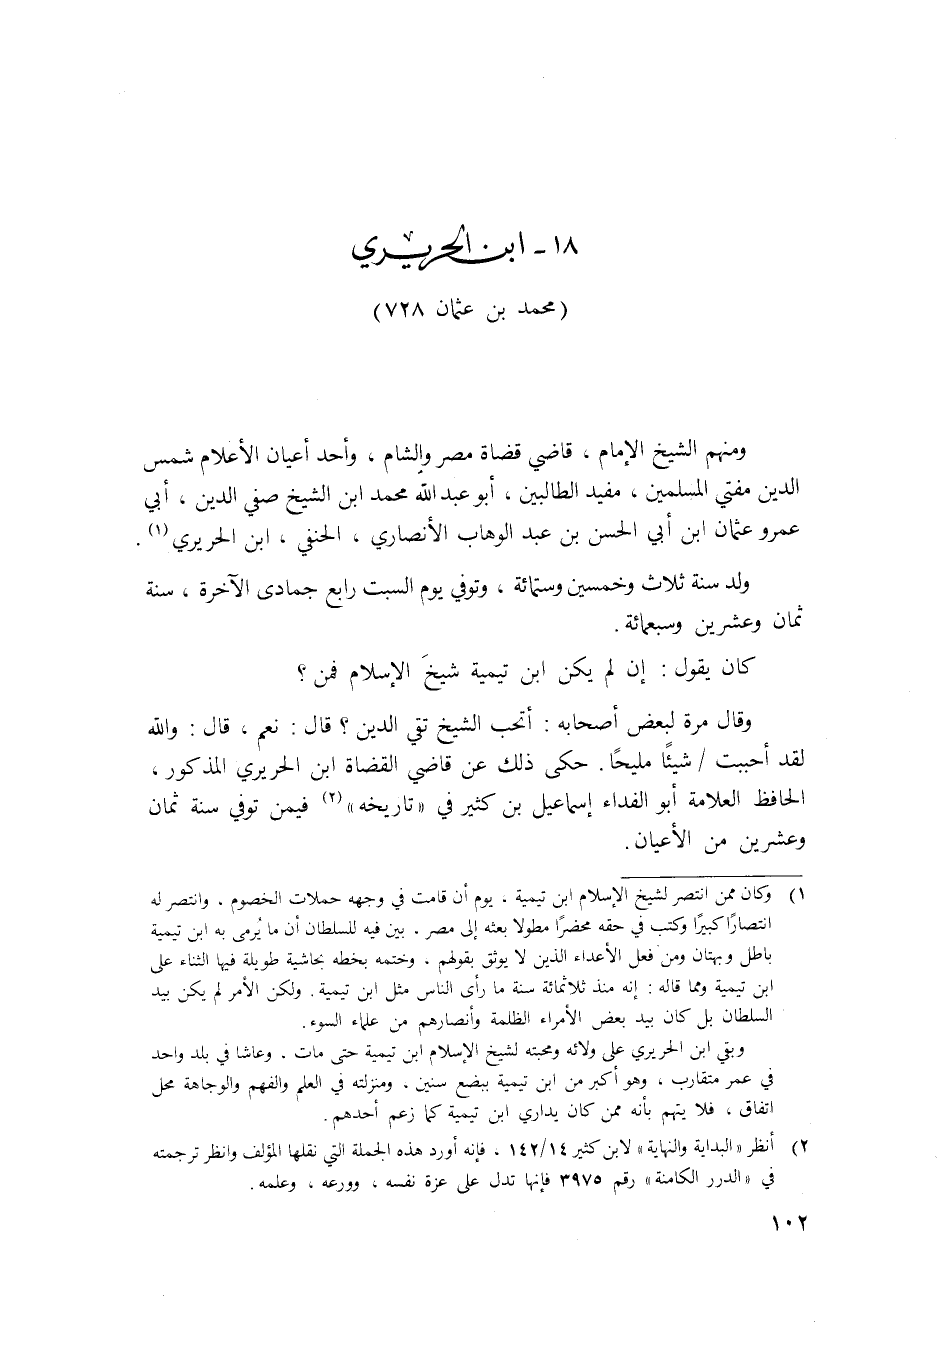 ١٨ - ابن الحريري
(محمد بن عثمان ٧٢٨)
ومنهم الشيخ الإمام ، قاضي قضاة مصر والشام ، وأحد أعيان الأعلام شمس
الدين مفتي المسلمين ، مفيد الطالبين ، أبو عبد الله محمد ابن الشيخ صفي الدين ، أبي
عمرو عثمان ابن أبي الحسن بن عبد الوهاب الأنصاري ، الحنفي ، ابن الحريري (١) .
ولد سنة ثلاث وخمسين وستمائة ، وتوفي يوم السبت رابع جمادى الآخرة ، سنة
ثمان وعشرين وسبعمائة .
كان يقول : إن لم يكن ابن تيمية شيخَ الإسلام فمن ؟
وقال مرة لبعض أصحابه : أتحب الشيخ تقي الدين ؟ قال : نعم ، قال : والله
لقد أحببت / شيئًا مليحًا . حكى ذلك عن قاضي القضاة ابن الحريري المذكور ،
الحافظ العلامة أبو الفداء إسماعيل بن كثير في «تاريخه» (٢) فيمن توفي سنة ثمان
وعشرين من الأعيان .
١) وكان ممن انتصر لشيخ الإسلام ابن تيمية ، يوم أن قامت في وجهه حملات الخصوم . وانتصر له
انتصارًا كبيرًا وكتب في حقه محضرًا مطولا بعثه إلى مصر . بين فيه للسلطان أن ما يُرمى به ابن تيمية
باطل وبهتان ومن فعل الأعداء الذين لا يوثق بقولهم . وختمه بخطه بحاشية طويلة فيها الثناء على
ابن تيمية ومما قاله : إنه منذ ثلاثمائة سنة ما رأى الناس مثل ابن تيمية . ولكن الأمر لم يكن بيد
السلطان بل كان بيد بعض الأمراء الظلمة وأنصارهم من علماء السوء .
وبقي ابن الحريري على ولائه ومحبته لشيخ الإسلام ابن تيمية حتى مات . وعاشا في بلد واحد
في عمر متقارب ، وهو أكبر من ابن تيمية ببضع سنين . ومنزلته في العلم والفهم والوجاهة محل
اتفاق ، فلا يتهم بأنه ممن كان يداري ابن تيمية كما زعم أحدهم .
٢) أنظر «البداية والنهاية» لابن كثير ١٤٢/١٤ ، فإنه أورد هذه الجملة التي نقلها المؤلف وانظر ترجمته
في «الدرر الكامنة» رقم ٣٩٧٥ فإنها تدل على عزة نفسه ، وورعه ، وعلمه .
١٠٢